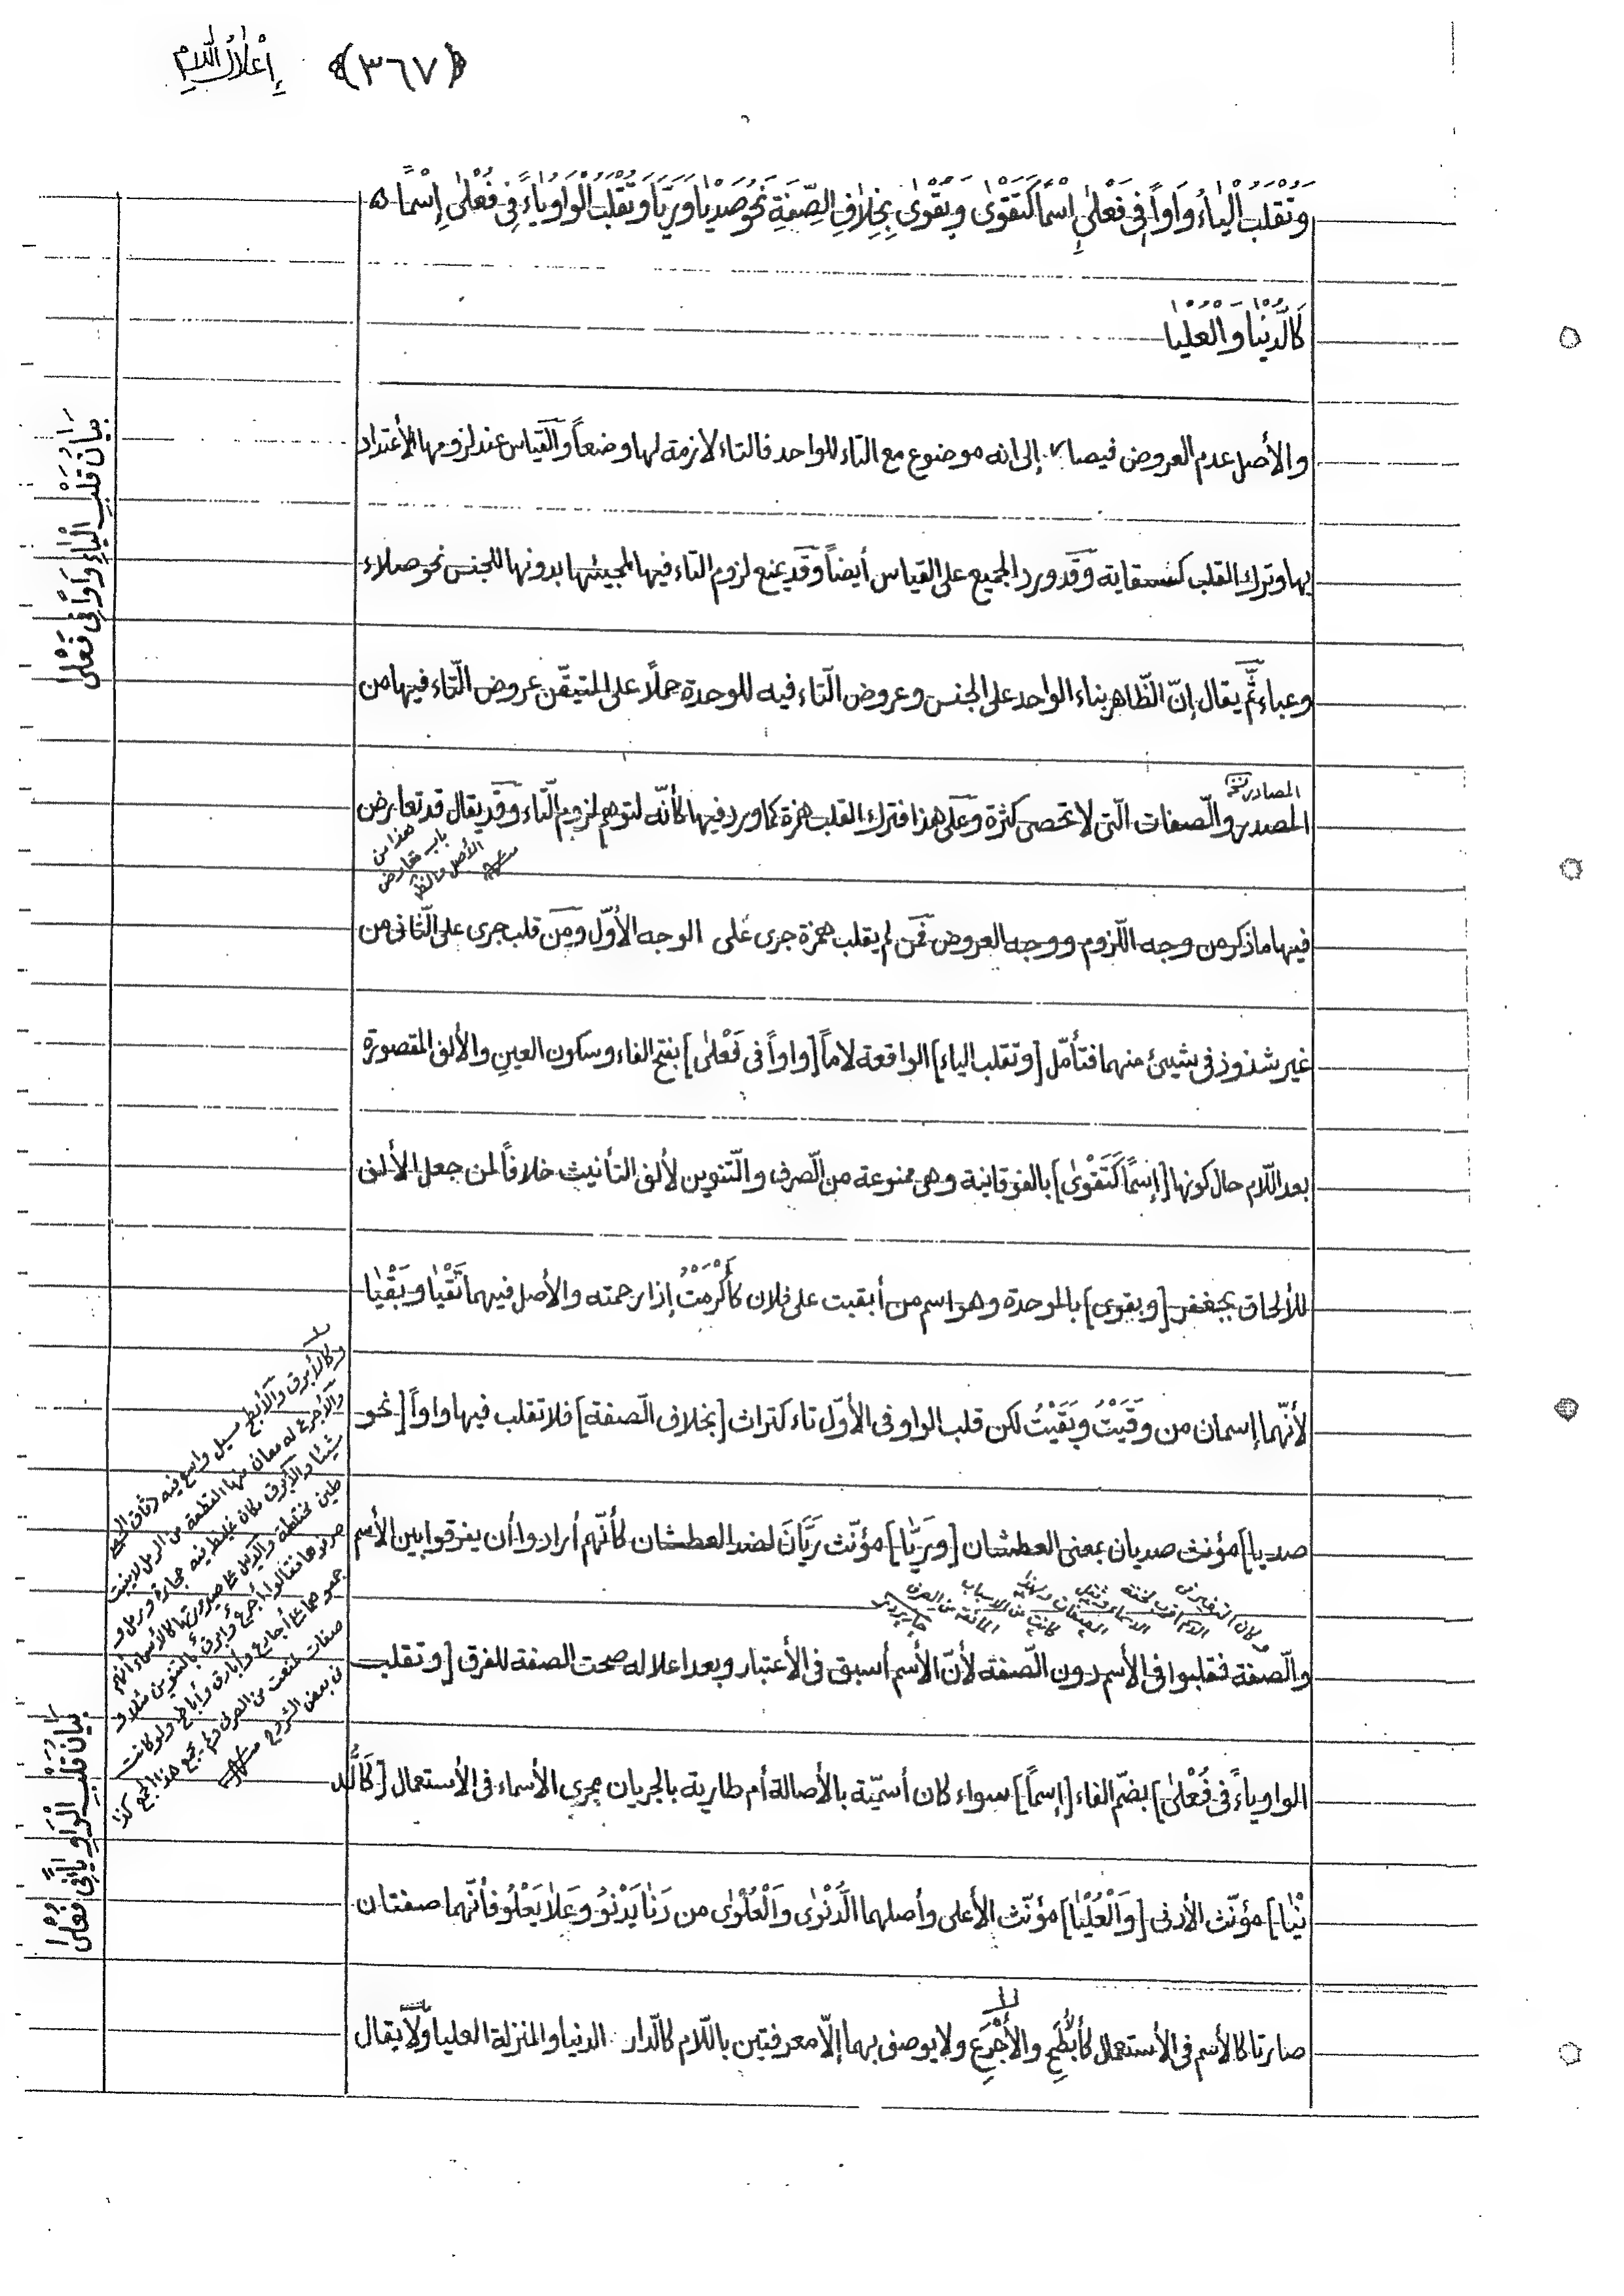 ﴿٣٦٧﴾ إِعْلَالُ اللَّامِ
وَتُقْلَبُ الْيٰاءُ وَاوًا فِى فَعْلىٰ إِسْمًا كَتَقْوىٰ وَبَقْوىٰ بِخِلٰافِ الصِّفَةِ نَحْوُ صَدْيٰا وَرَيّٰا وَتُقْلَبُ الْوٰاوُ يٰاءً فِى فُعْلىٰ إِسْمًا
كَالدُّنْيٰا وَالْعُلْيٰا
والأصل عدم العروض فيصار إلى انه موضوع مع التاء للواحد فالتاء لازمة لها وضعاً والقياس عند لزومها الأعتداد
بها وترك القلب كسقاية وقد ورد الجميع على القياس أيضاً وقد يمنع لزوم التاء فيها لمجيئها بدونها للجنس نحو صلاء
وعباء ثمّ يقال إنّ الظّاهر بناء الواحد على الجنس وعروض التّاء فيه للوحدة حملاً على المتيقّن عروض التّاء فيها من
المصادر
المصدر والصّفات الّتى لا تحصى كثرة وعلى هذا فترك القلب همزة كما ورد فيها كأنّه لتوهم لزوم التّاء وقد يقال قد تعارض
هذا من
باب تعارض
الأصل والظ
فيها ما ذكر من وجه اللّزوم ووجه العروض فمن لم يقلب همزة جرى على الوجه الأوّل ومن قلب جرى على الثّانى من
غير شذوذ فى شيئ منهما فتأمّل [وتقلب الياء] الواقعة لاماً [واواً فى فَعْلىٰ] بفتح الفاء وسكون العين والألف المقصورة
بعد اللّام حال كونها [إسمًا كَتَقْوىٰ] بالفوقانية وهى ممنوعة من الصّرف والتّنوين لألف التأنيث خلافاً لمن جعل الألف
للألحاق بجعفر [وبقوى] بالموحدة وهو اسم من أبقيت على فلان كَأَكْرَمْتُ إذا رحمته والأصل فيهما تَقْيٰا وبَقْيٰا
لأنّهما إسمان من وَقَيْتُ وبَقَيْتُ لكن قلب الواو فى الأوّل تاء كتراث [بخلاف الصّفة] فلا تقلب فيها واواً [نحو
صديا] مؤنث صديان بمعنى العطشان [وَرَيّٰا] مؤنّث رَيَّانَ لضد العطشان كأنّهم أرادوا أن يفرقوا بين الأسم
والصّفة فقلبوا فى الأسم دون الصّفة لأنّ الأسم أسبق فى الأعتبار وبعد اعلاله صحت الصفة للفرق [وتقلب
الواو ياءً فى فُعْلىٰ] بضمّ الفاء [إسماً] سواء كان أسميّة بالأصالة أم طارية بالجريان مجرى الأسماء فى الأستعمال [كَالدُّ
نْيٰا] مؤنّث الأدنى [وَالْعُلْيٰا] مؤنّث الأعلى وأصلهما الدُّنْوىٰ وَالْعُلْوىٰ من دَنٰا يَدْنُوُ وَعَلاٰ يَعْلُوُ فأنّهما صفتان
صارتا كالأسم فى الأستعمال كأَبْطَحِ والأَجْرَعِ ولا يوصف بهما إلّا معرفتين باللّام كالدّار الدنيا والمنزلة العليا ولا يقال
بيان قلب الْيٰاءِ وٰاواً فِى فَعْلىٰ
بيان قلب الْوٰاوِ يٰاءً فِى فُعْلىٰ
وكالأبرق والأبطح مسيل واسع فيه دقاق الحصى
والأجرع له معان منها القطعة من الرمل لا ينبت
شيئا والأبرق مكان غليظ فيه حجارة ورمل و
طين مختلطة